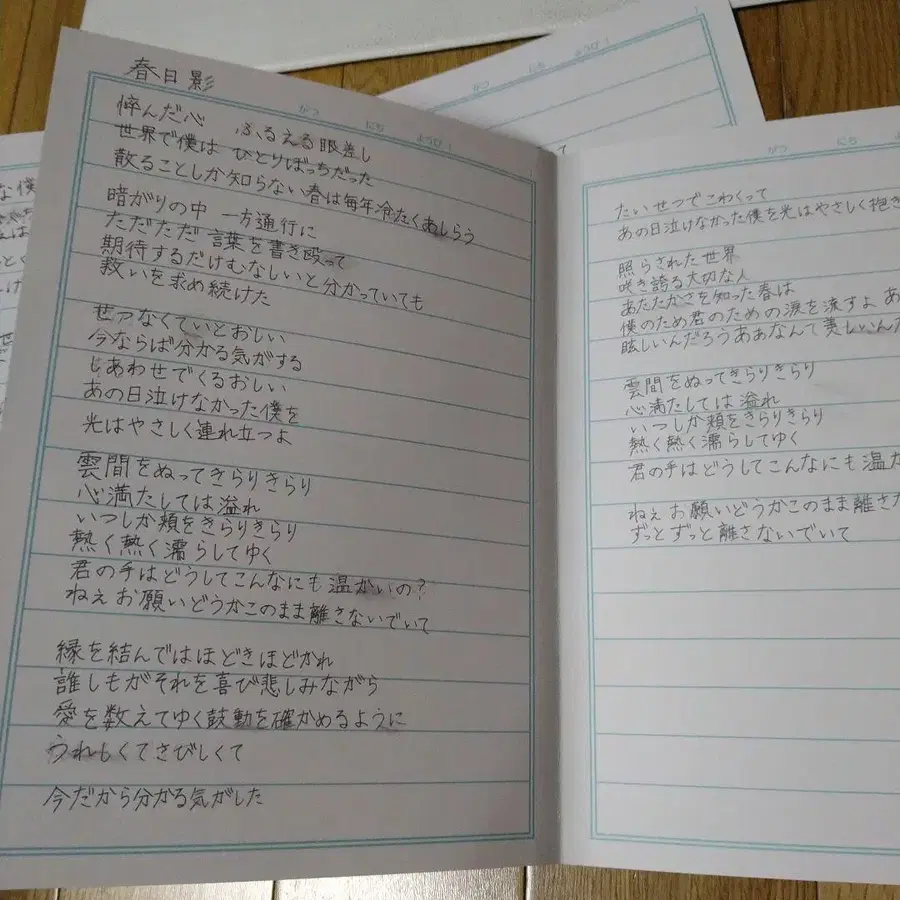 春日影
がつ にち ようび
悴んだ心 ふるえる眼差し
世界で僕は ひとりぼっちだった
散ることしか知らない春は毎年冷たくあしらう
暗がりの中 一方通行に
ただただ 言葉を書き殴って
期待するだけむなしいと分かっていても
救いを求め続けた
せつなくていとおしい
今ならば分かる気がする
しあわせでくるおしい
あの日泣けなかった僕を
光はやさしく連れ立つよ
雲間をぬってきらりきらり
心満たしては溢れ
いつしか頬をきらりきらり
熱く熱く濡らしてゆく
君の手はどうしてこんなにも温かいの?
ねぇお願いどうかこのまま離さないでいて
縁を結んではほどきほどかれ
誰しもがそれを喜び悲しみながら
愛を数えてゆく鼓動を確かめるように
うれしくてさびしくて
今だから分かる気がした
がつ にち ようび
がつ にち
たいせつでこわくって
あの日泣けなかった僕を光はやさしく抱き
照らされた世界
咲き誇る大切な人
あたたかさを知った春は
僕のため君のための涙を流すよ
眩しいんだろうあぁなんて美しいんだ
雲間をぬってきらりきらり
心満たしては溢れ
いつしか頬をきらりきらり
熱く熱く濡らしてゆく
君の手はどうしてこんなにも温か
ねぇお願いどうかこのまま離さな
ずっとずっと離さないでいて